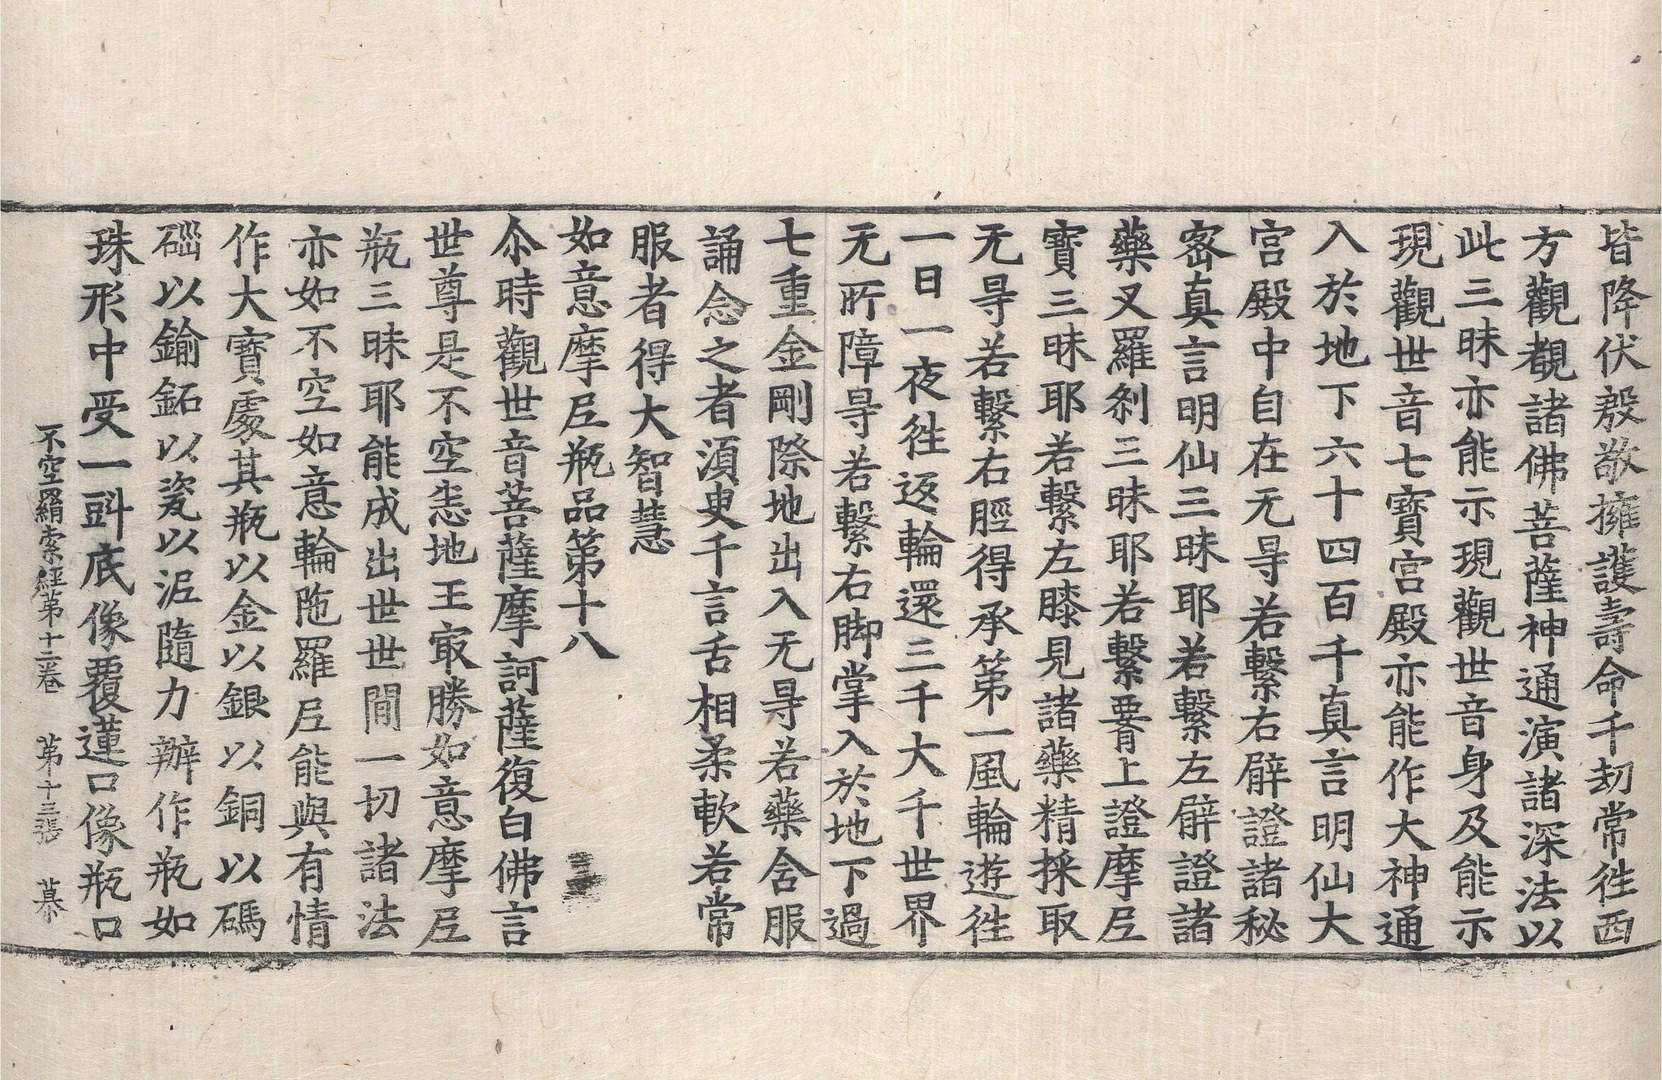 皆降伏㪇敬擁護壽命千劫常徃西
方觀覩諸佛菩薩神通演諸深法以
此三昧亦能示現觀世音身及能示
現觀世音七寶宮殿亦能作大神通
入於地下六十四百千真言明仙大
宮殿中自在无㝵若繫右臂證諸秘
密真言明仙三昧耶若繫左臂證諸
藥叉羅刹三昧耶若繫署上證摩尼
寶三昧耶若繫左膝見諸藥精採取
无㝵若繫右脛得承第一風輪遊徃
一日一夜徃返輪還三千大千世界
无所障㝵若繫右脚掌入於地下過
七重金剛際地出入无㝵若藥舍服
誦念之者須臾千言舌相柔軟若常
服者得大智慧
如意摩尼瓶品第十八
尒時觀世音菩薩摩訶薩復白佛言
世尊是不空悉地王㝡勝如意摩尼
瓶三昧耶能成出世世間一切諸法
亦如不空如意輪陁羅尼能與有情
作大寶處其瓶以金以銀以銅以碼
碯以鍮鉐以瓷以泥隨力辦作瓶如
珠形中受一㪷底像覆蓮口像瓶口
不空羂索經第十二卷　第十三張　慕